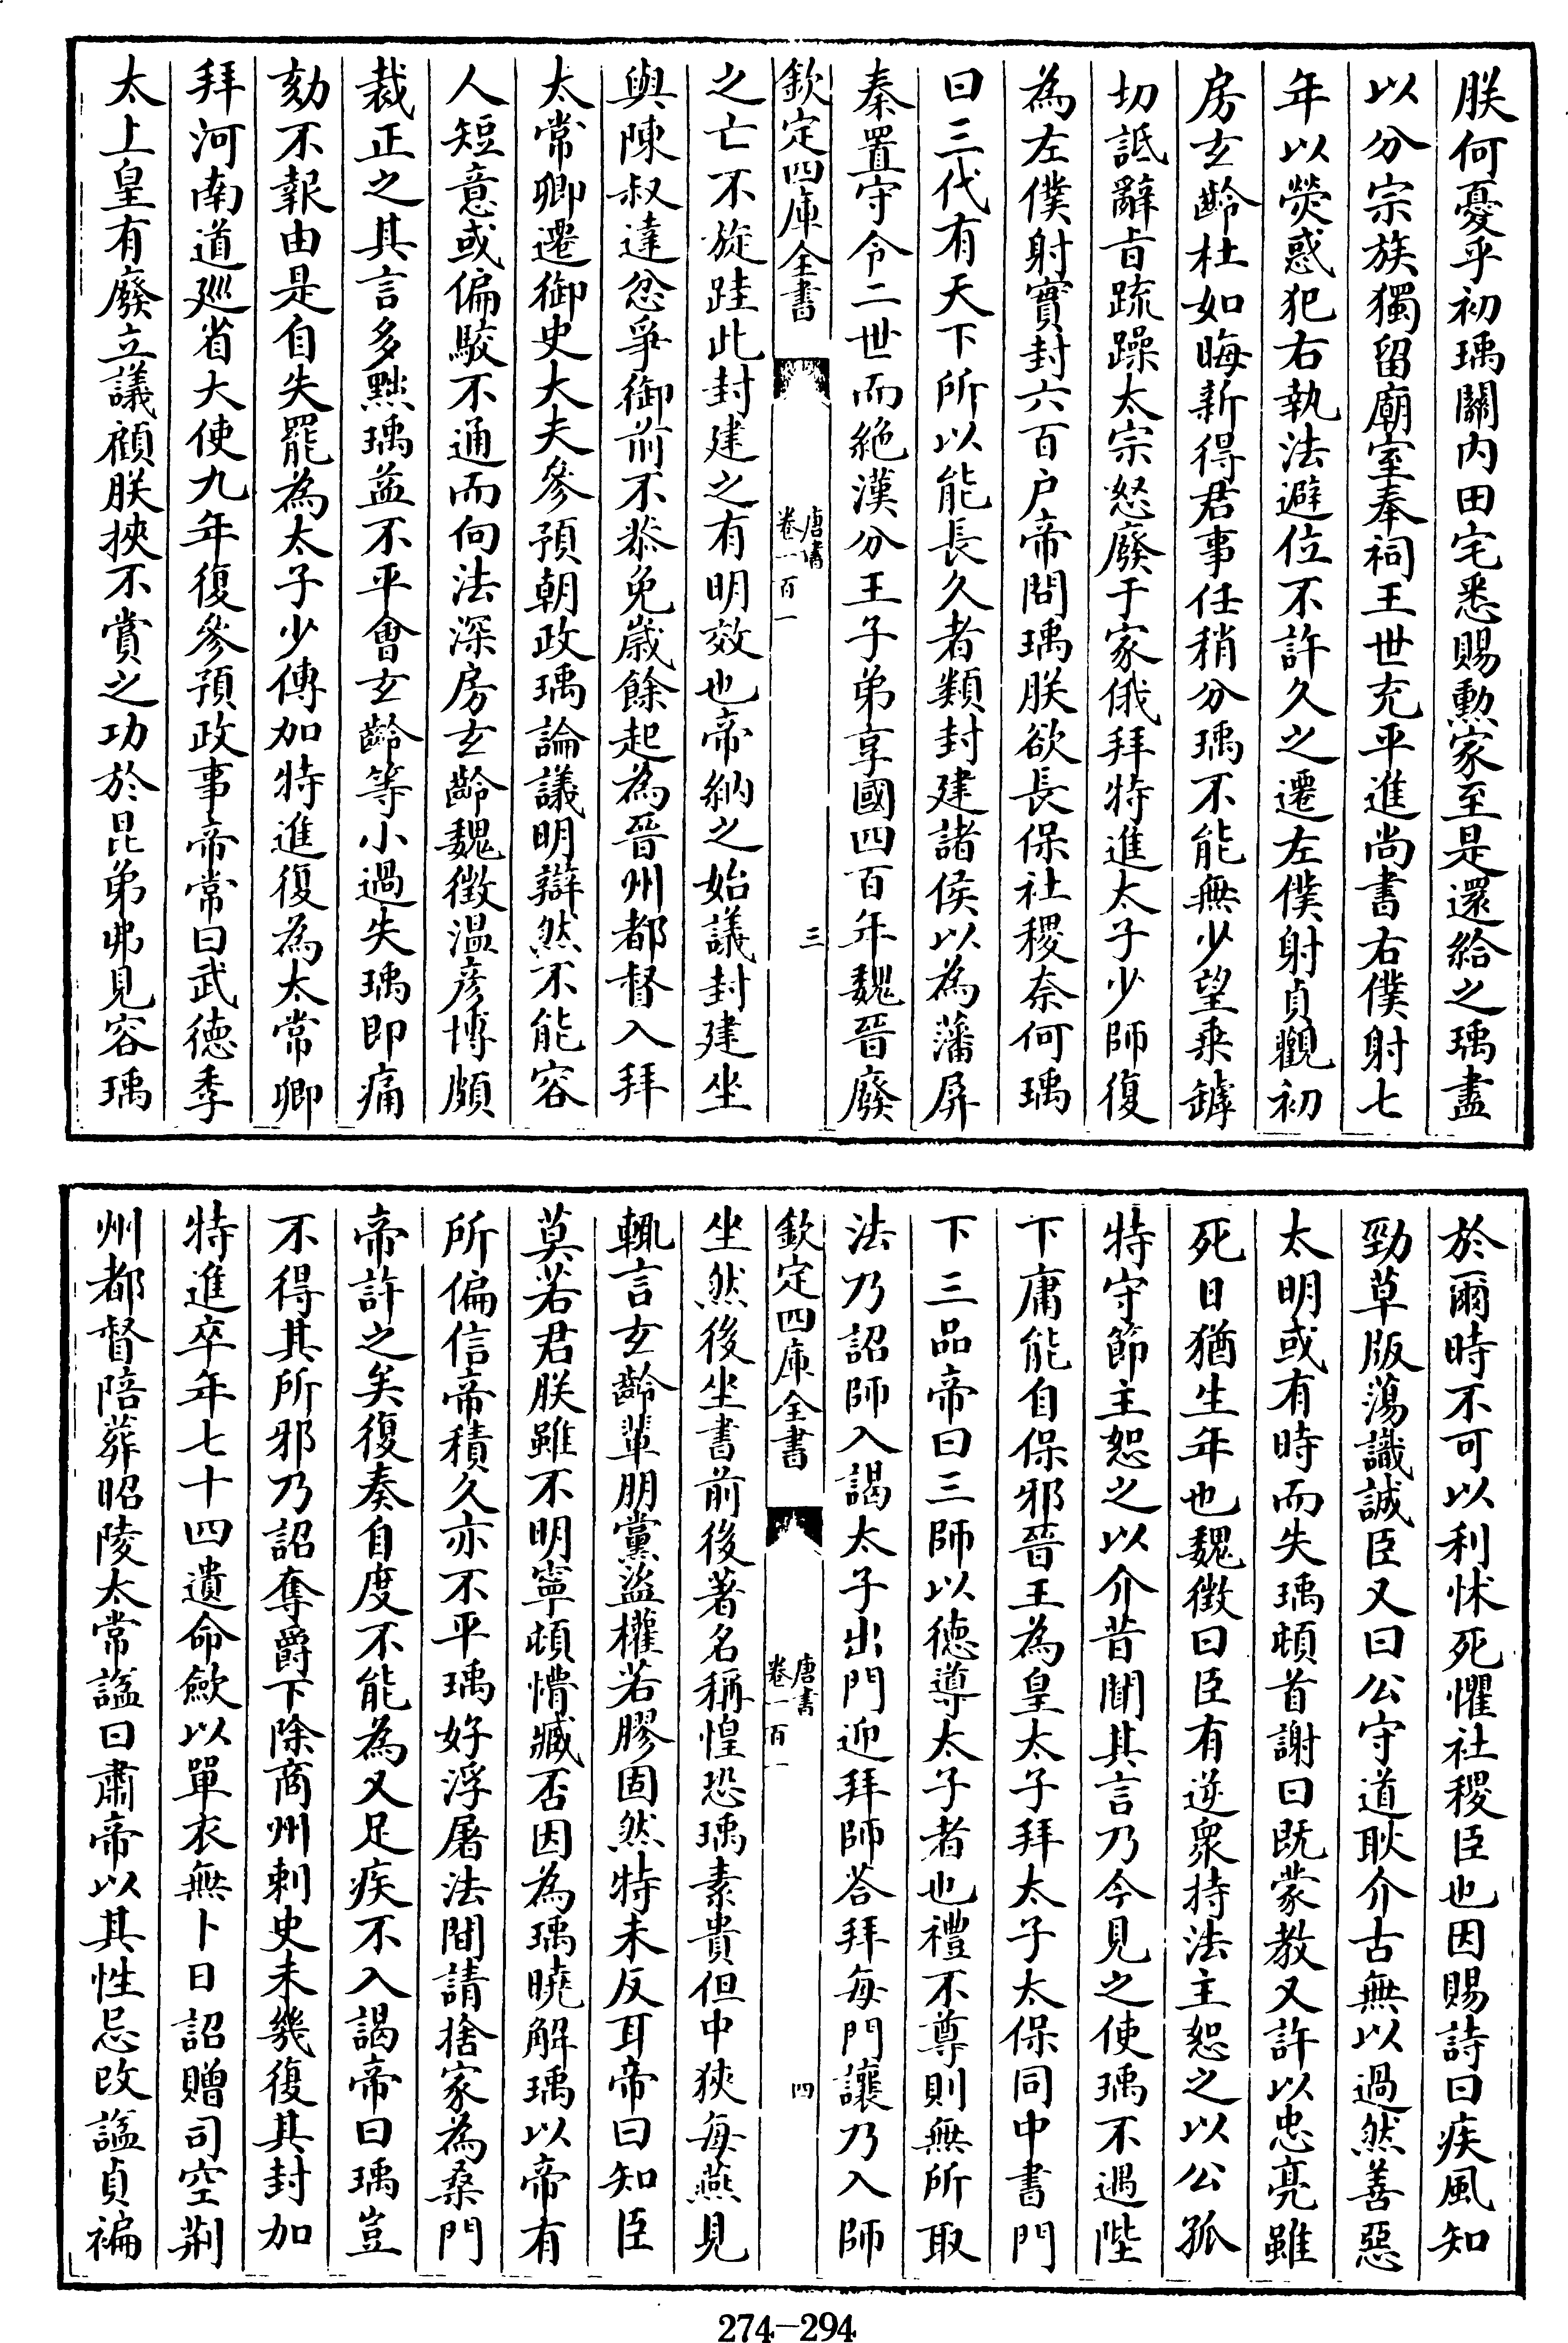 朕何憂乎初瑀關内田宅悉賜勲家至是還給之瑀盡
以分宗族獨留廟室奉祠王世充平進尚書右僕射七
年以熒惑犯右執法避位不許久之遷左僕射貞觀初
房玄齡杜如晦新得君事任稍分瑀不能無少望乗罅
切詆辭旨疏躁太宗怒廢于家俄拜特進太子少師復
為左僕射實封六百户帝問瑀朕欲長保社稷奈何瑀
曰三代有天下所以能長久者類封建諸侯以為藩屏
秦置守令二世而絶漢分王子弟享國四百年魏晉廢
欽定四庫全書
唐書
卷一百一
三
之亡不旋跬此封建之有明效也帝納之始議封建坐
與陳叔達忿爭御前不恭免嵗餘起為晉州都督入拜
太常卿遷御史大夫參預朝政瑀論議明辯然不能容
人短意或偏駮不通而向法深房玄齡魏徵温彦博頗
裁正之其言多黜瑀益不平會玄齡等小過失瑀即痛
劾不報由是自失罷為太子少傅加特進復為太常卿
拜河南道廵省大使九年復參預政事帝常曰武徳季
太上皇有廢立議顧朕挾不賞之功於昆弟弗見容瑀
於爾時不可以利怵死懼社稷臣也因賜詩曰疾風知
勁草版蕩識誠臣又曰公守道耿介古無以過然善惡
太明或有時而失瑀頓首謝曰既蒙教又許以忠亮雖
死日猶生年也魏徵曰臣有逆衆持法主恕之以公孤
特守節主恕之以介昔聞其言乃今見之使瑀不遇陛
下庸能自保邪晉王為皇太子拜太子太保同中書門
下三品帝曰三師以徳導太子者也禮不尊則無所取
法乃詔師入謁太子出門迎拜師答拜每門讓乃入師
欽定四庫全書
唐書
卷一百一
四
坐然後坐書前後著名稱惶恐瑀素貴但中狹每燕見
輒言玄齡輩朋黨盜權若膠固然特未反耳帝曰知臣
莫若君朕雖不明寧頓懵臧否因為瑀曉解瑀以帝有
所偏信帝積久亦不平瑀好浮屠法間請捨家為桑門
帝許之矣復奏自度不能為又足疾不入謁帝曰瑀豈
不得其所邪乃詔奪爵下除商州刺史未幾復其封加
特進卒年七十四遺命斂以單衣無卜日詔贈司空荆
州都督陪葬昭陵太常諡曰肅帝以其性忌改諡貞褊
274—294